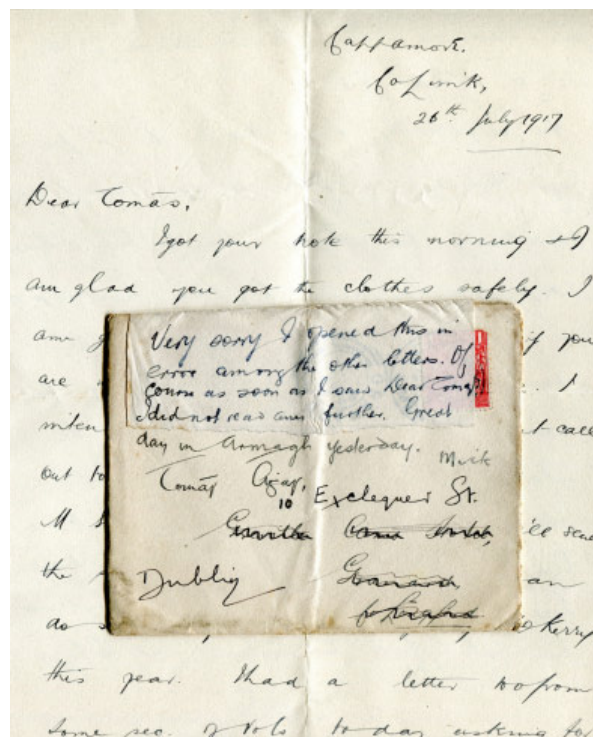 Cappamore.
Co Limk,
26th July 1917
Dear Tomás,
I got your note this morning & I
am glad you got the clothes safely. I
am g
if you
are
. I
inten
t call
out to
M S
'll sen
the
an
do s
o Kerry
this year. I had a letter too from
some sec. of Vols today asking for
Very sorry I opened this in
error among the other letters. Of
course as soon as I saw Dear Tomás
I did not read any further. Great
day in Armagh yesterday.
Mick
Tomás
10 Exchequer St.
Dublin